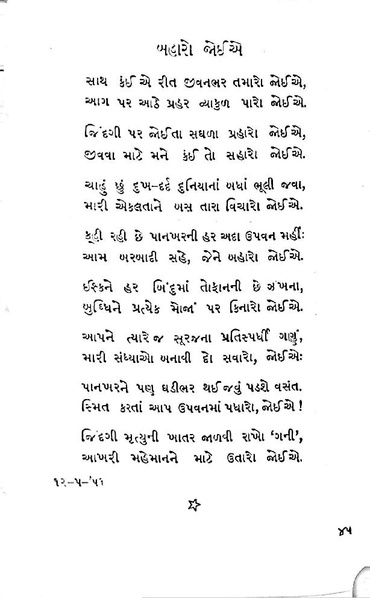 બહારો જોઈએ
સાથ કંઈ એ રીત જીવનભર તમારો જોઈએ,
આગ પર આઠે પ્રહર વ્યાકુળ પારો જોઈએ.
જિંદગી પર જોઈતા સઘળા પ્રહારો જોઈએ,
જીવવા માટે મને કંઈ તો સહારો જોઈએ.
ચાહું છું દુખ-દર્દ દુનિયાનાં બધાં ભૂલી જવા,
મારી એકલતાને બસ તારા વિચારો જોઈએ.
કહી રહી છે પાનખરની હર અદા ઉપવન મહીં:
આમ બરબાદી સહે, જેને બહારો જોઈએ.
ઈશ્કને હર બિંદુમાં તોફાનની છે ઝંખના,
બુદ્ધિને પ્રત્યેક મોજાં પર કિનારો જોઈએ.
આપને ત્યારે જ સૂરજના પ્રતિસ્પર્ધી ગણું,
મારી સંધ્યાઓ બનાવી દો સવારો, જોઈએ:
પાનખરને પણ ઘડીભર થઈ જવું પડશે વસંત.
સ્મિત કરતાં આપ ઉપવનમાં પધારો, જોઈએ !
જિંદગી મૃત્યુની ખાતર જાળવી રાખો ‘ગની’,
આખરી મહેમાનને માટે ઉતારો જોઈએ.
૧૨-૫-'૫૧
૪૫